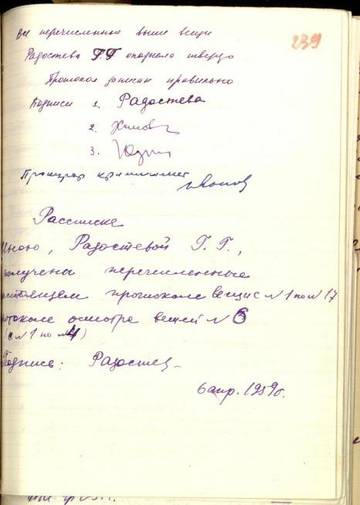 239
Все перечисленные выше вещи
Радостева Г Г опознала твердо
Протокол записан правильно
Подписи 1. Радостева
2.
3. Юдин
Прокурор криминалист Иванов
Расписка
Мною, Радостевой Г. Г.,
получены перечисленные
настоящем протоколе вещи с N 1 по N 17
протоколе осмотра вещей N 6
(с N 1 по N4)
Подпись: Радостева
6 апр. 1959г.